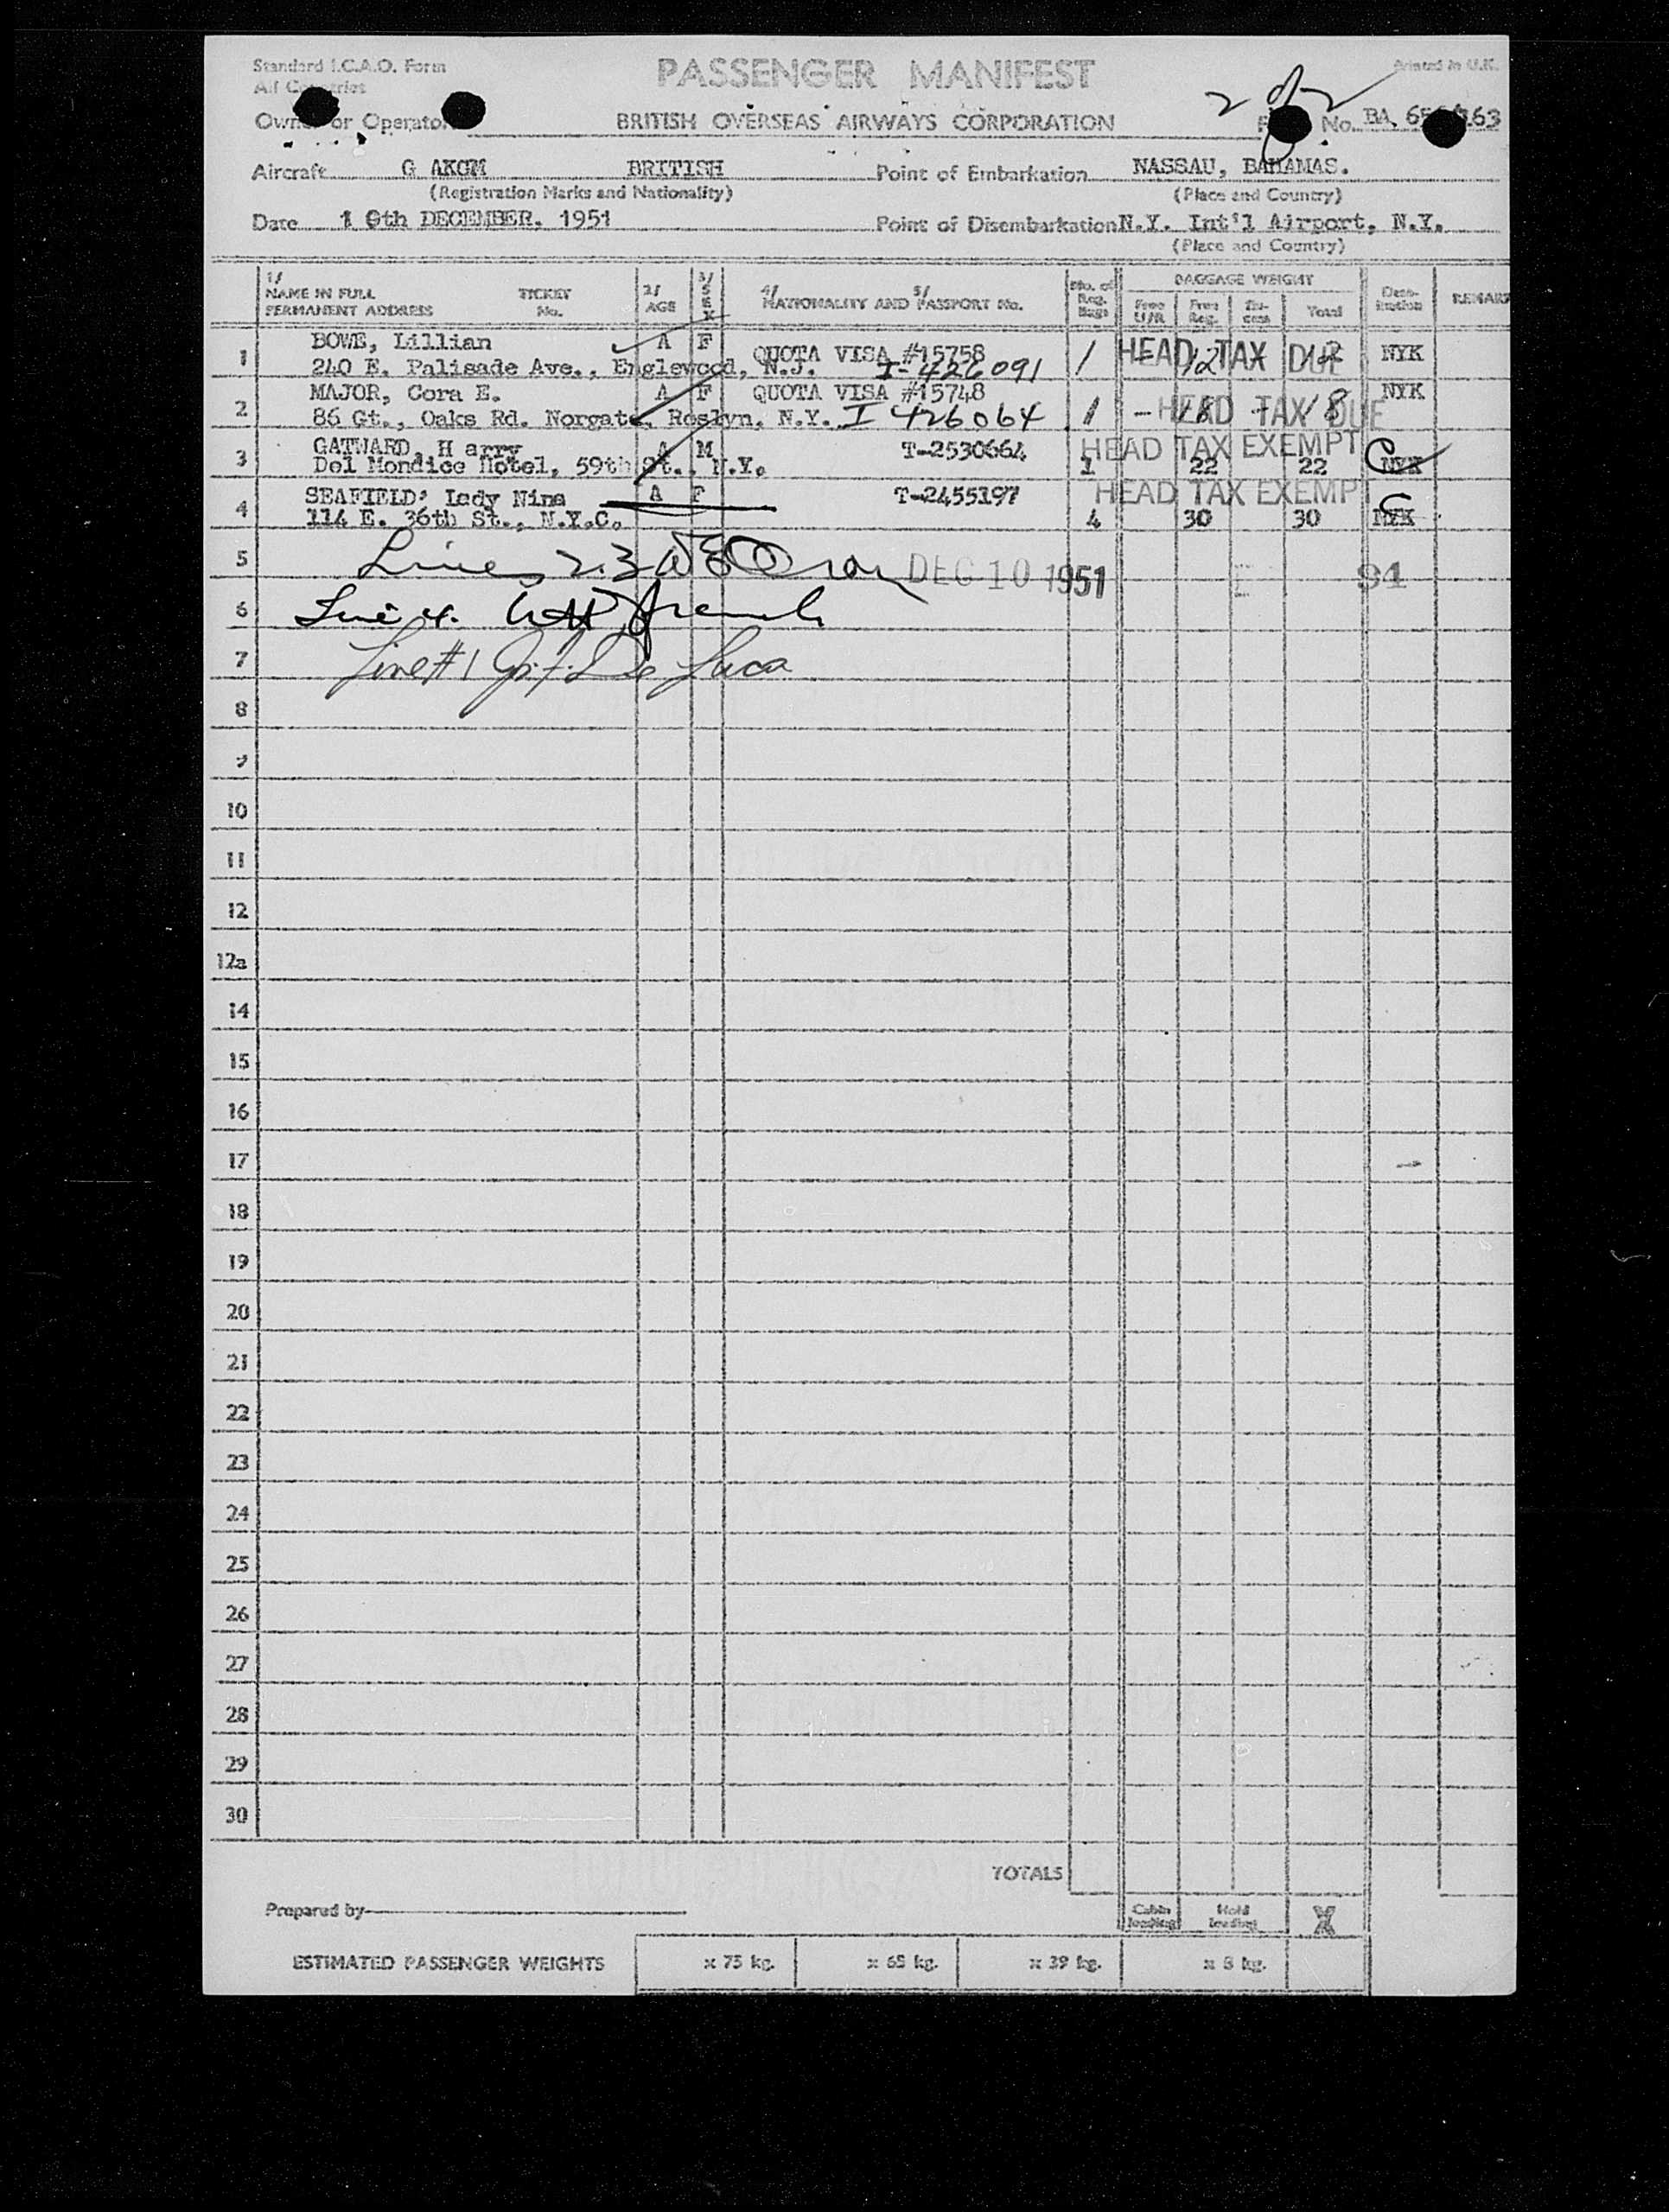 Standard I.C.A.O. Form
PASSENGER MANIFEST
Printed in U.K.
All Countries
2 of 2
Owner or Operator
BRITISH OVERSEAS AIRWAYS CORPORATION
No. BA. 163
Aircraft G AKGM BRITISH
Point of Embarkation NASSAU, BAHAMAS.
(Registration Marks and Nationality)
(Place and Country)
Date 10th DECEMBER, 1951
Point of Disembarkation N.Y. Int'l Airport, N.Y.
(Place and Country)
1/ NAME IN FULL TICKET No.
PERMANENT ADDRESS
2/ AGE
3/ SEX
4/ 5/ NATIONALITY AND PASSPORT No.
No. of Reg. Bags
BAGGAGE WEIGHT
Free U/R
Free Reg.
Ex-cess
Total
Dest-ination
REMARK
1 BOWE, Lillian A F QUOTA VISA #15758 1 HEAD TAX DUE 12 NYK
240 E. Palisade Ave., Englewood, N.J. I-426091
2 MAJOR, Cora E. A F QUOTA VISA #15748 NYK
86 Gt., Oaks Rd. Norgate, Roslyn, N.Y. I 426064 1 - 18 - 18 HEAD TAX DUE
3 GATWARD, H arry A M T-2530664 HEAD TAX EXEMPT
Del Mondice Hotel, 59th St., N.Y. 1 22 22 NYK
4 SEAFIELD: Lady Nina A F T-2455197 HEAD TAX EXEMP
114 E. 36th St., N.Y.C. 4 30 30 NYK
5 Lines 2.3 DEC 10 1951 94
6 Line 4.
7 Line #1 De Luca
8
9
10
11
12
12a
14
15
16
17
18
19
20
21
22
23
24
25
26
27
28
29
30
TOTALS
Prepared by
Cabin loading
Hold loading
X
ESTIMATED PASSENGER WEIGHTS
x 75 kg.
x 65 kg.
x 39 kg.
x 8 kg.